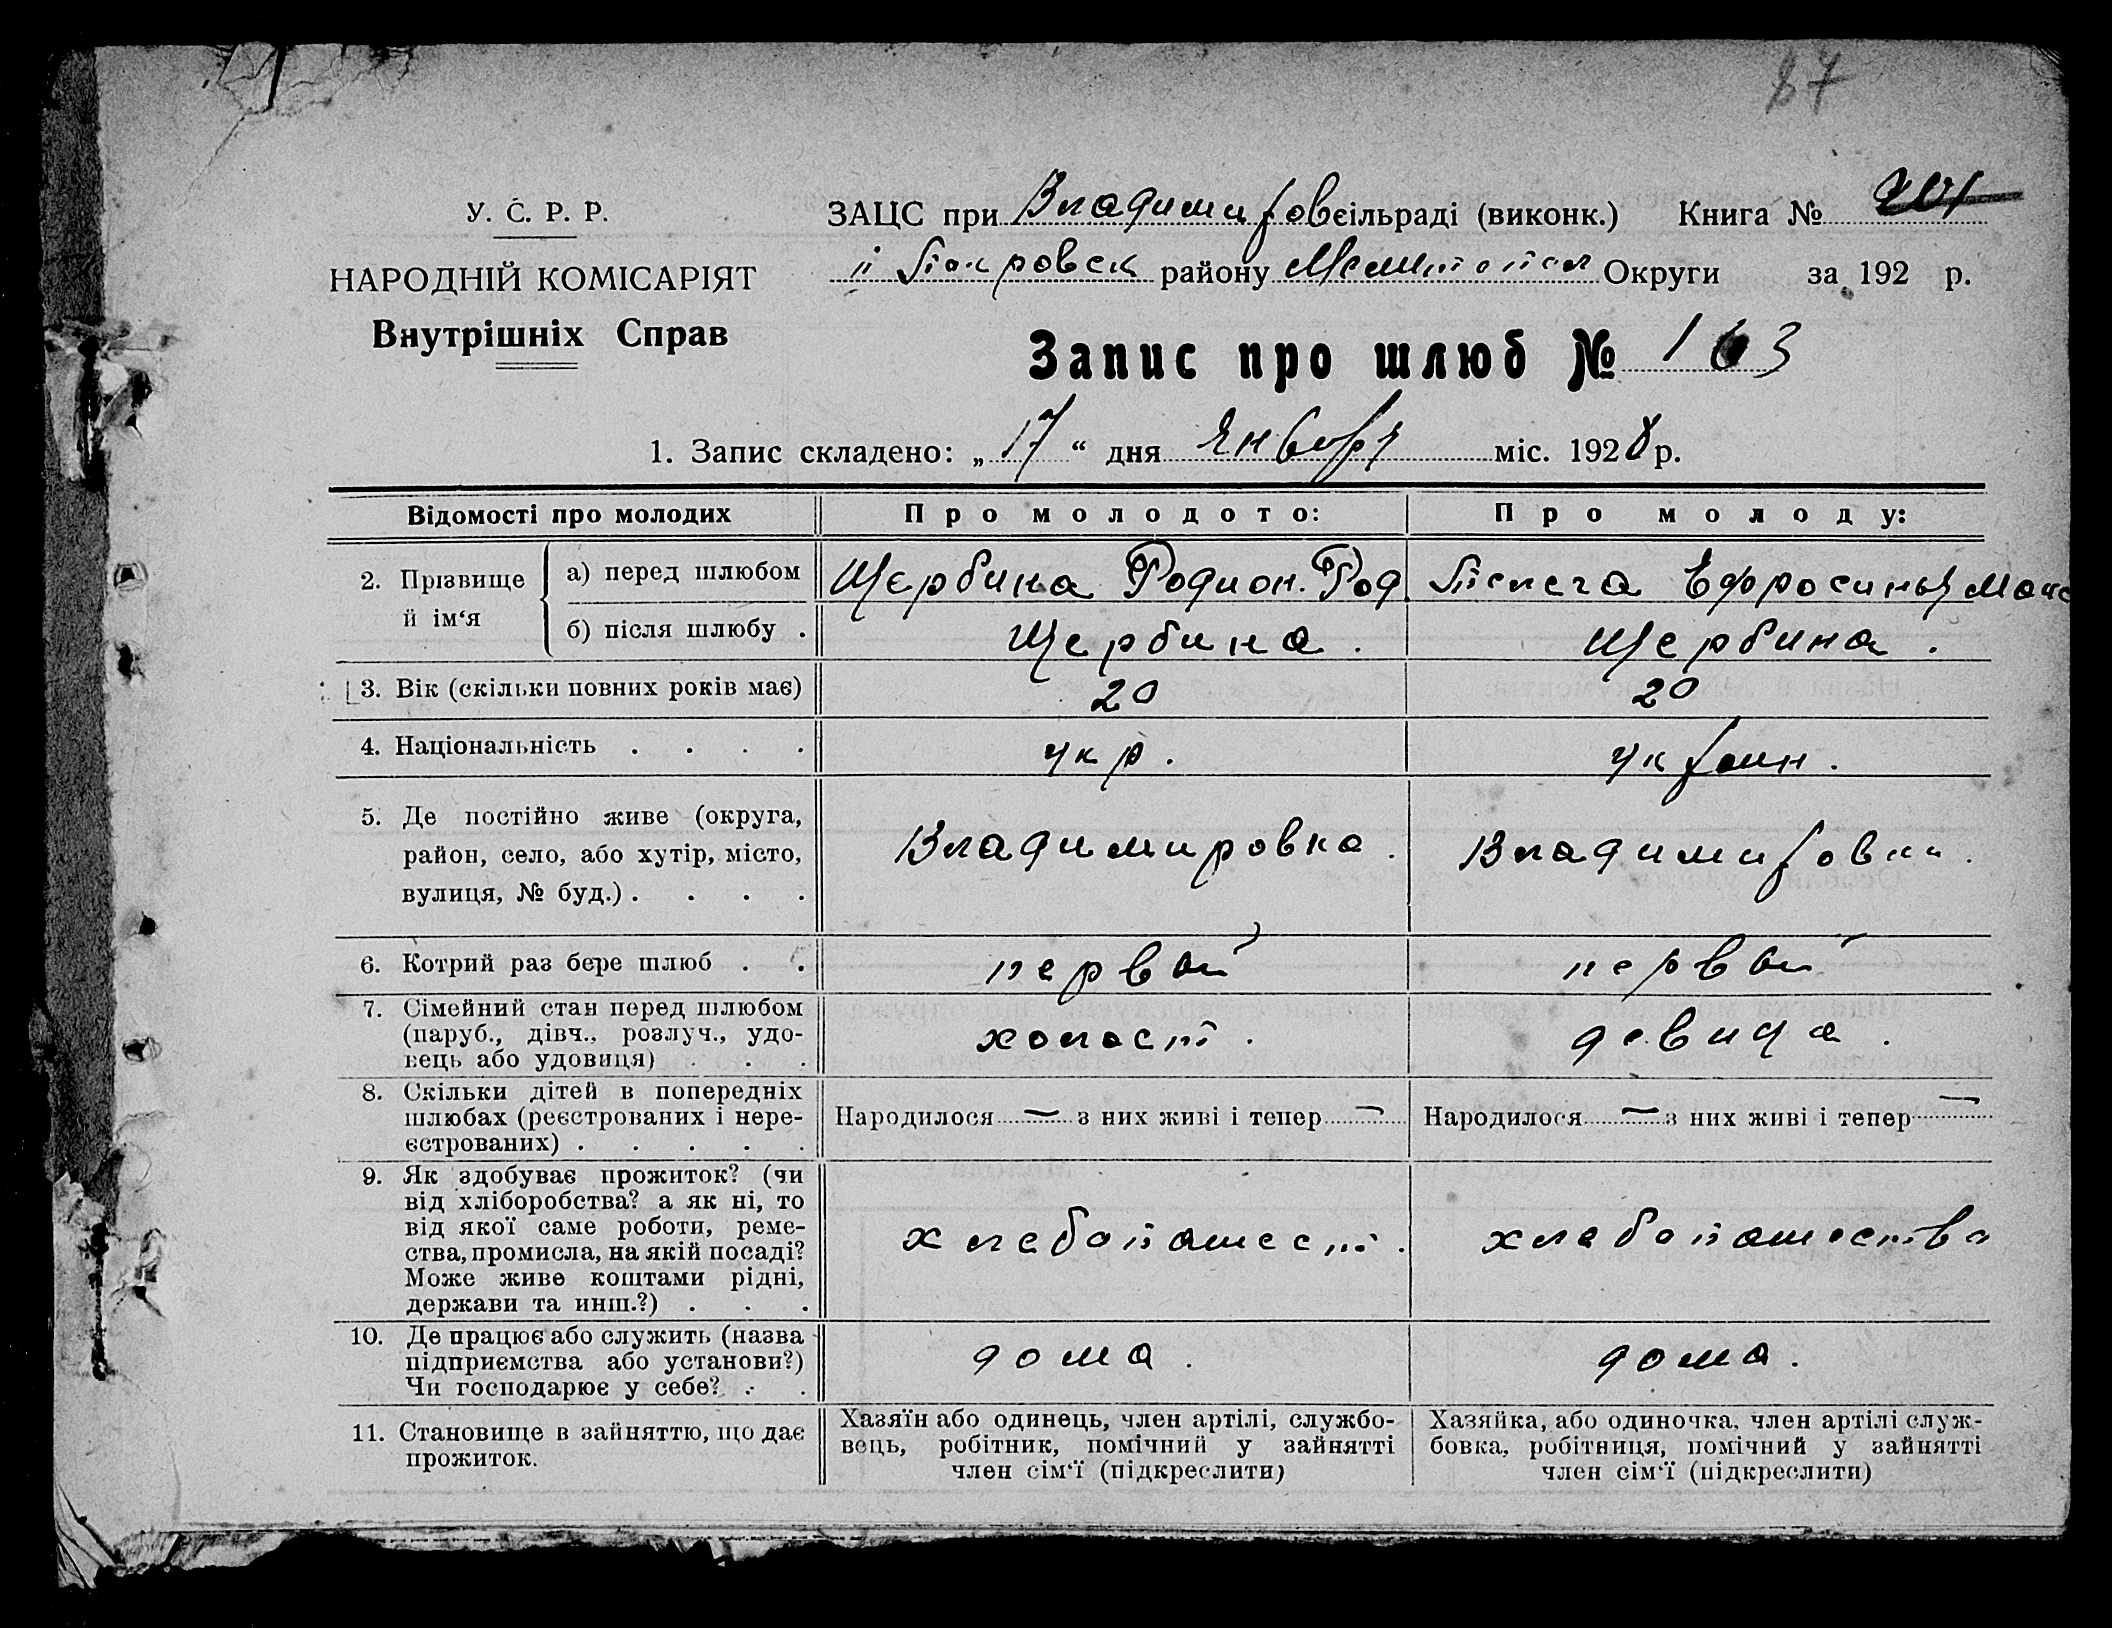 87
У. С. Р. Р.
НАРОДНІЙ КОМІСАРІЯТ
Внутрішніх Справ
ЗАЦС при Владимировсільраді (виконк.) Книга № 201
ІІ Покровск району Мелитопол Округи за 192 р.
Запис про шлюб № 163
1. Запис складено: „17“ дня Январ міс. 1928 р.
Відомості про молодих Про молодого: Про молоду:
2. Прізвище й ім‘я
а) перед шлюбом Щербина Родион. Род. Ефросинья
б) після шлюбу . Щербина . Щербина .
3. Вік (скільки повних років має) 20 20
4. Національність . . . . укр. украин.
5. Де постійно живе (округа,
район, село, або хутір, місто,
вулиця, № буд.) . . . .
Владимировка . Владимировка .
6. Котрий раз бере шлюб . . первой первой
7. Сімейний стан перед шлюбом
(паруб., дівч., розлуч., удо-
вець або удовиця) . . .
холост . девица .
8. Скільки дітей в попередніх
шлюбах (реєстрованих і нере-
єстрованих) . . . . .
Народилося — з них живі і тепер — Народилося — з них живі і тепер —
9. Як здобуває прожиток? (чи
від хліборобства? а як ні, то
від якої саме роботи, реме-
ства, промисла, на якій посаді?
Може живе коштами рідні,
держави та инш.?) . . .
хлебопашест . хлебопашества
10. Де працює або служить (назва
підприємства або установи?)
Чи господарює у себе? . .
дома . дома .
11. Становище в зайняттю, що дає
прожиток.
Хазяїн або одинець, член артілі, службо-
вець, робітник, помічний у зайнятті
член сім‘ї (підкреслити)
Хазяйка, або одиночка, член артілі служ-
бовка, робітниця, помічний у зайнятті
член сім‘ї (підкреслити)